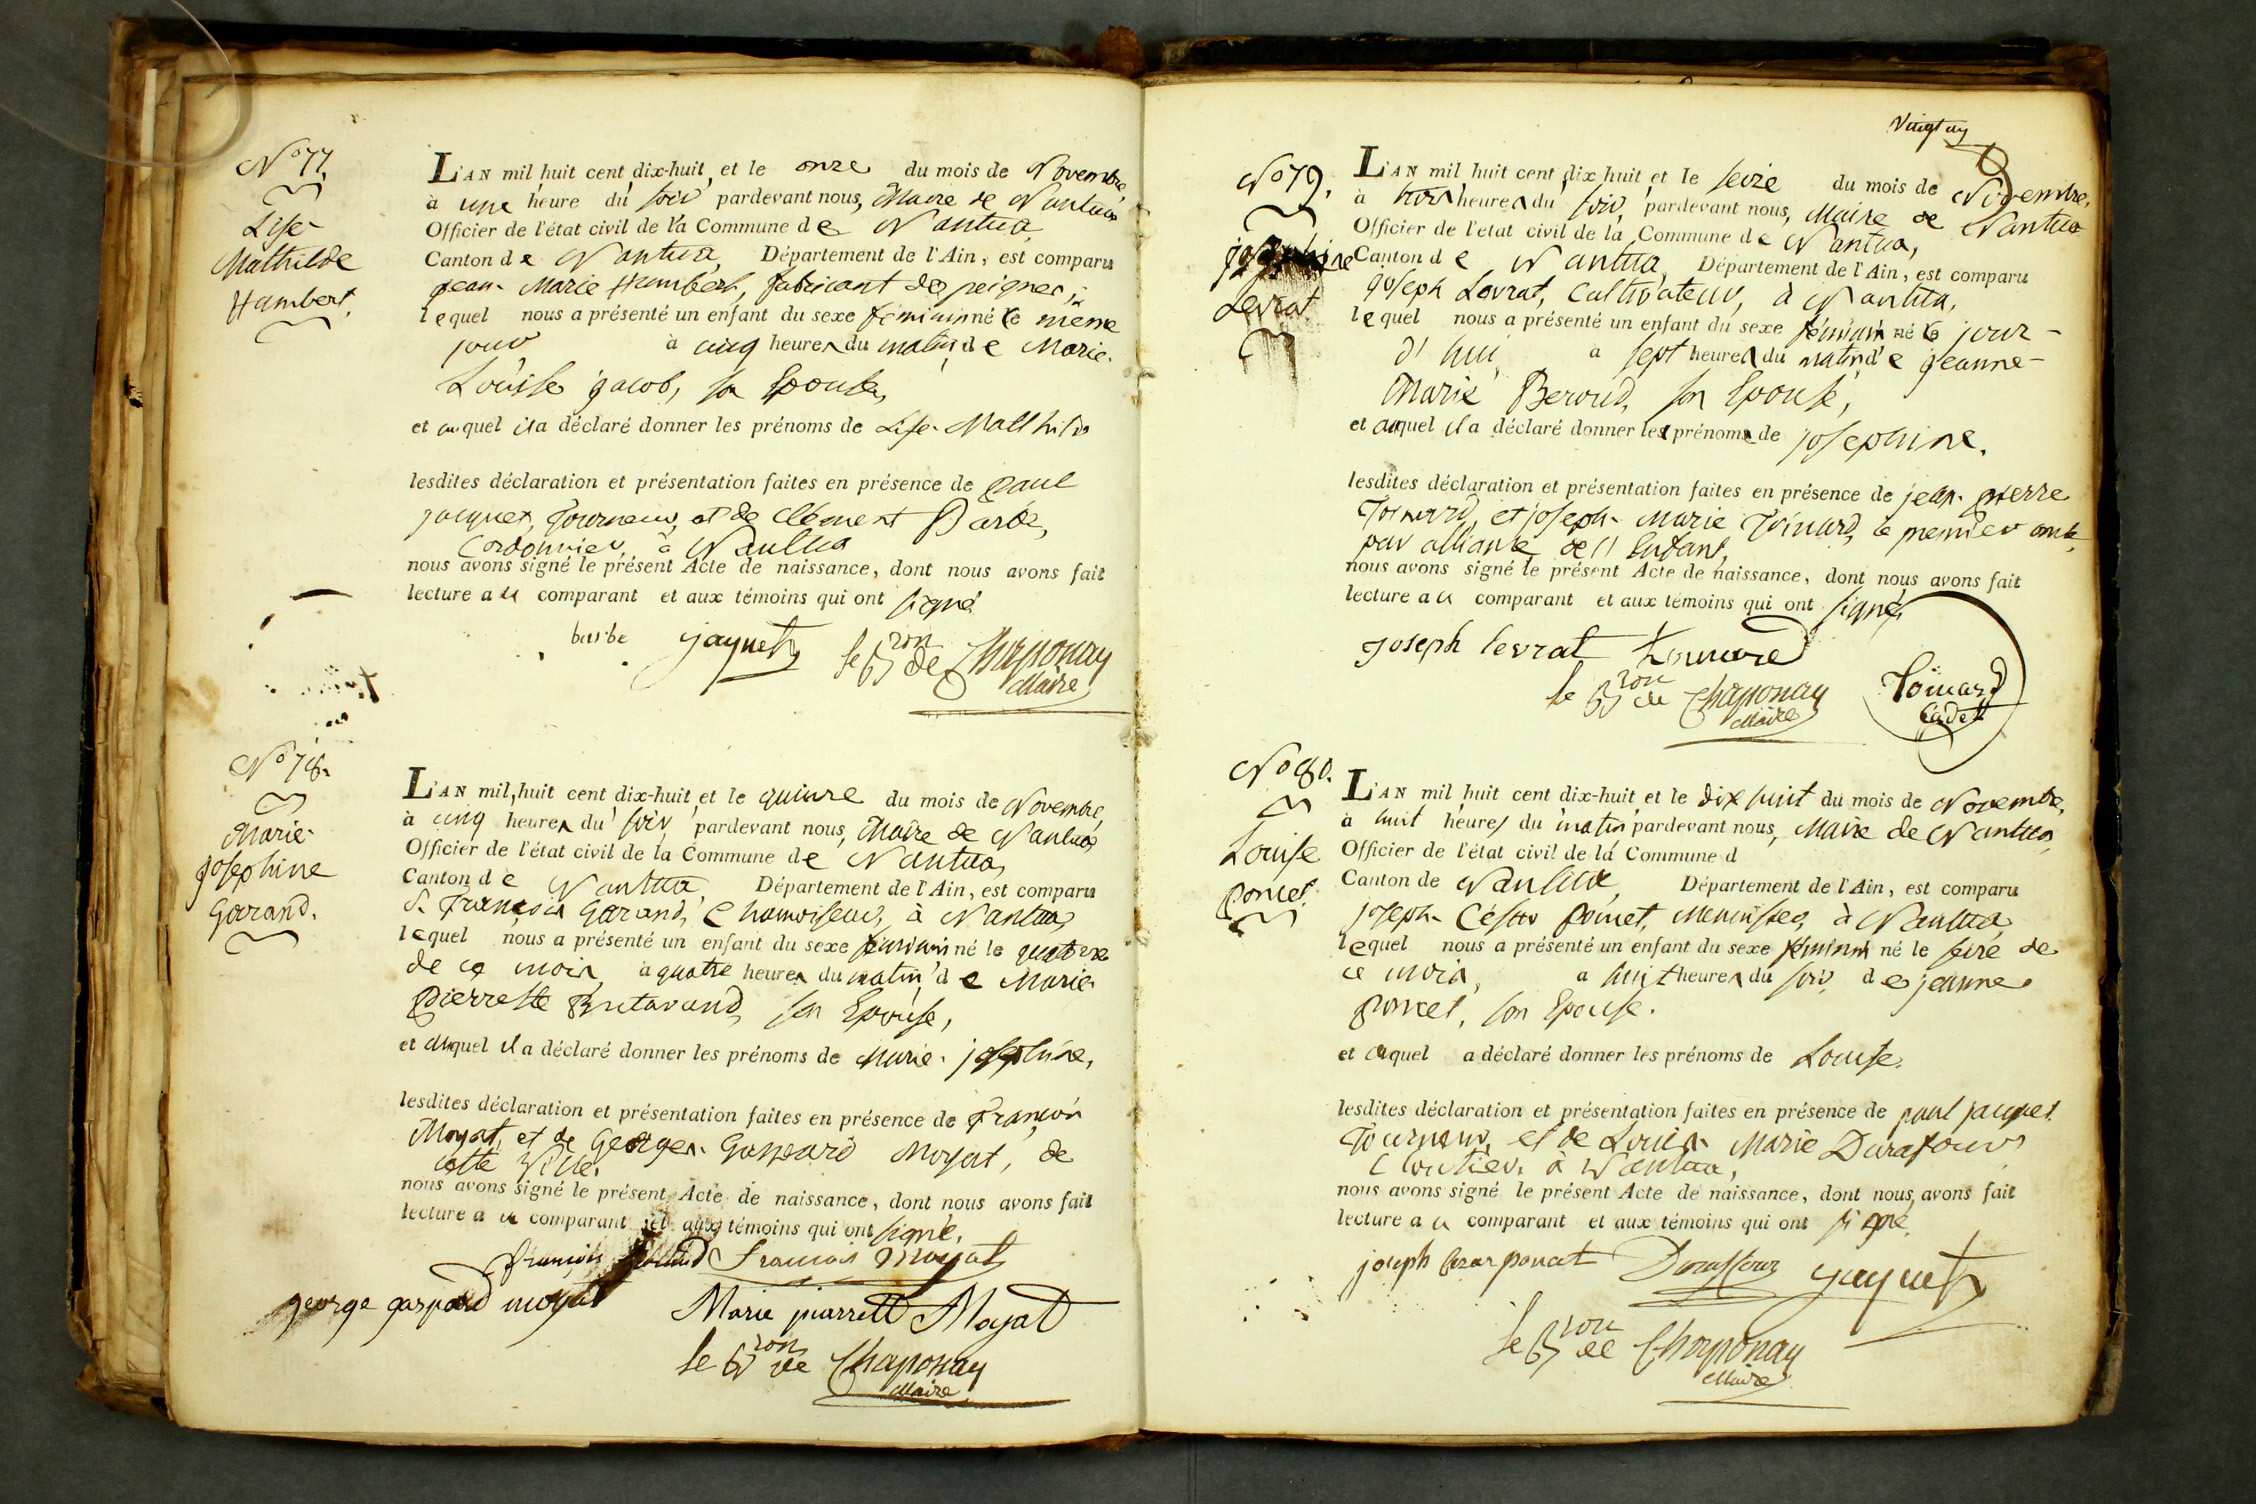 N° 77.
Lise-
Mathilde
Humbert.
L'AN mil huit cent dix-huit, et le onze du mois de Novembre,
à une heure du soir pardevant nous, Maire de Nantua
Officier de l'état civil de la Commune de Nantua
Canton de Nantua, Département de l'Ain, est comparu
jean-Marie Humbert, fabricant de peignes,
lequel nous a présenté un enfant du sexe féminin né le même
jour à cinq heures du matin de Marie-
Louise jacob, son Epouse,
et auquel il a déclaré donner les prénoms de Lise-Mathilde
lesdites déclaration et présentation faites en présence de paul
jacquet, Tourneur, et de Clément Barbe,
Cordonnier, à Nantua
nous avons signé le présent Acte de naissance, dont nous avons fait
lecture au comparant et aux témoins qui ont signé
barbe jaquet le Bron de Chaponay
Maire
N° 78.
Marie-
josephine
Garand.
L'AN mil huit cent dix-huit et le quinze du mois de Novembre,
à cinq heures du soir pardevant nous, Maire de Nantua
Officier de l'état civil de la Commune de Nantua
Canton de Nantua Département de l'Ain, est comparu
S. François Garand, Chamoiseur, à Nantua,
lequel nous a présenté un enfant du sexe féminin né le quatorze
de ce mois, à quatre heures du matin de Marie-
pierrette son Epouse,
et auquel il a déclaré donner les prénoms de Marie-josephine,
lesdites déclaration et présentation faites en présence de François
Moyat, et de Georges-Gaspard Moyat, de
cette Ville,
nous avons signé le présent Acte de naissance, dont nous avons fait
lecture au comparant et aux témoins qui ont signé.
françois francois Moyat
george gaspard moyat Marie piarrett Moyat
le Bron de Chaponay
Maire
Vingt un
N° 79.
josephine
Levrat
L'AN mil huit cent dix huit et le seize du mois de Novembre,
à trois heures du soir, pardevant nous, Maire de Nantua
Officier de l'etat civil de la Commune de Nantua,
Canton de Nantua, Département de l'Ain, est comparu
joseph Levrat, Cultivateur, à Nantua,
lequel nous a présenté un enfant du sexe féminin né le jour-
d'hui, a sept heures du matin de jeanne-
Marie Beroud, son Epouse,
et auquel il a déclaré donner les prénoms de josephine.
lesdites déclaration et présentation faites en présence de jean-pierre
Toinard, et joseph-Marie Toinard, le premier oncle
par alliance de l'Enfant,
nous avons signé le présent Acte de naissance, dont nous avons fait
lecture au comparant et aux témoins qui ont signé
joseph levrat Toinard
le Bron de Chaponay
Maire
Toinard
Cadet
N° 80.
Louise
poncet.
L'AN mil huit cent dix-huit et le dix huit du mois de Novembre,
à huit heures du matin pardevant nous, Maire de Nantua
Officier de l'état civil de la Commune d
Canton de Nantua, Département de l'Ain, est comparu
joseph- poncet, Menuisier, à Nantua
lequel nous a présenté un enfant du sexe féminin né le seize de
ce mois, a huit heures du soir, de jeanne
poncet, son Epouse.
et auquel a déclaré donner les prénoms de Louise.
lesdites déclaration et présentation faites en présence de paul jacquet
Tourneur, et de Louis-Marie Durafour
Cloutier, à Nantua,
nous avons signé le présent Acte de naissance, dont nous avons fait
lecture au comparant et aux témoins qui ont signé.
joseph poncet Duraffour jaquet
le Bron de Chaponay
Maire